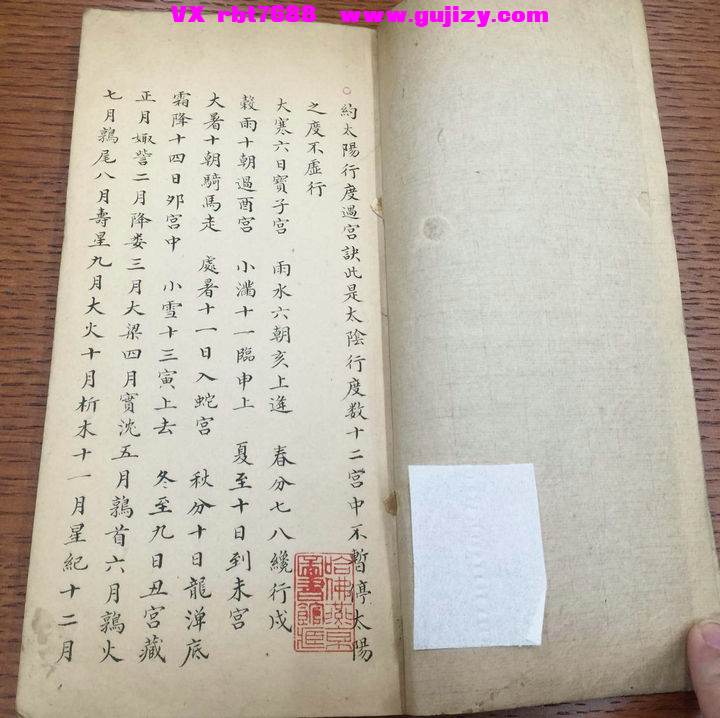 VX rbt7688 www.gujizy.com
約太陽行度過宮訣此是太陰行度数十二宮中不暫停太陽
之度不虛行
大寒六日寳子宮 雨水六朝亥上逢 春分七八纔行戍
穀雨十朝過酉宮 小滿十一臨申上 夏至十日到未宮
大暑十朝騎馬走 處暑十一日入蛇宮 秋分十日龍潭底
霜降十四日夘宮中 小雪十三寅上去 冬至九日丑宮藏
正月娵訾二月降婁三月大梁四月實沈五月鶉首六月鶉火
七月鶉尾八月壽星九月大火十月析木十一月星紀十二月
哈佛燕京
圖書館